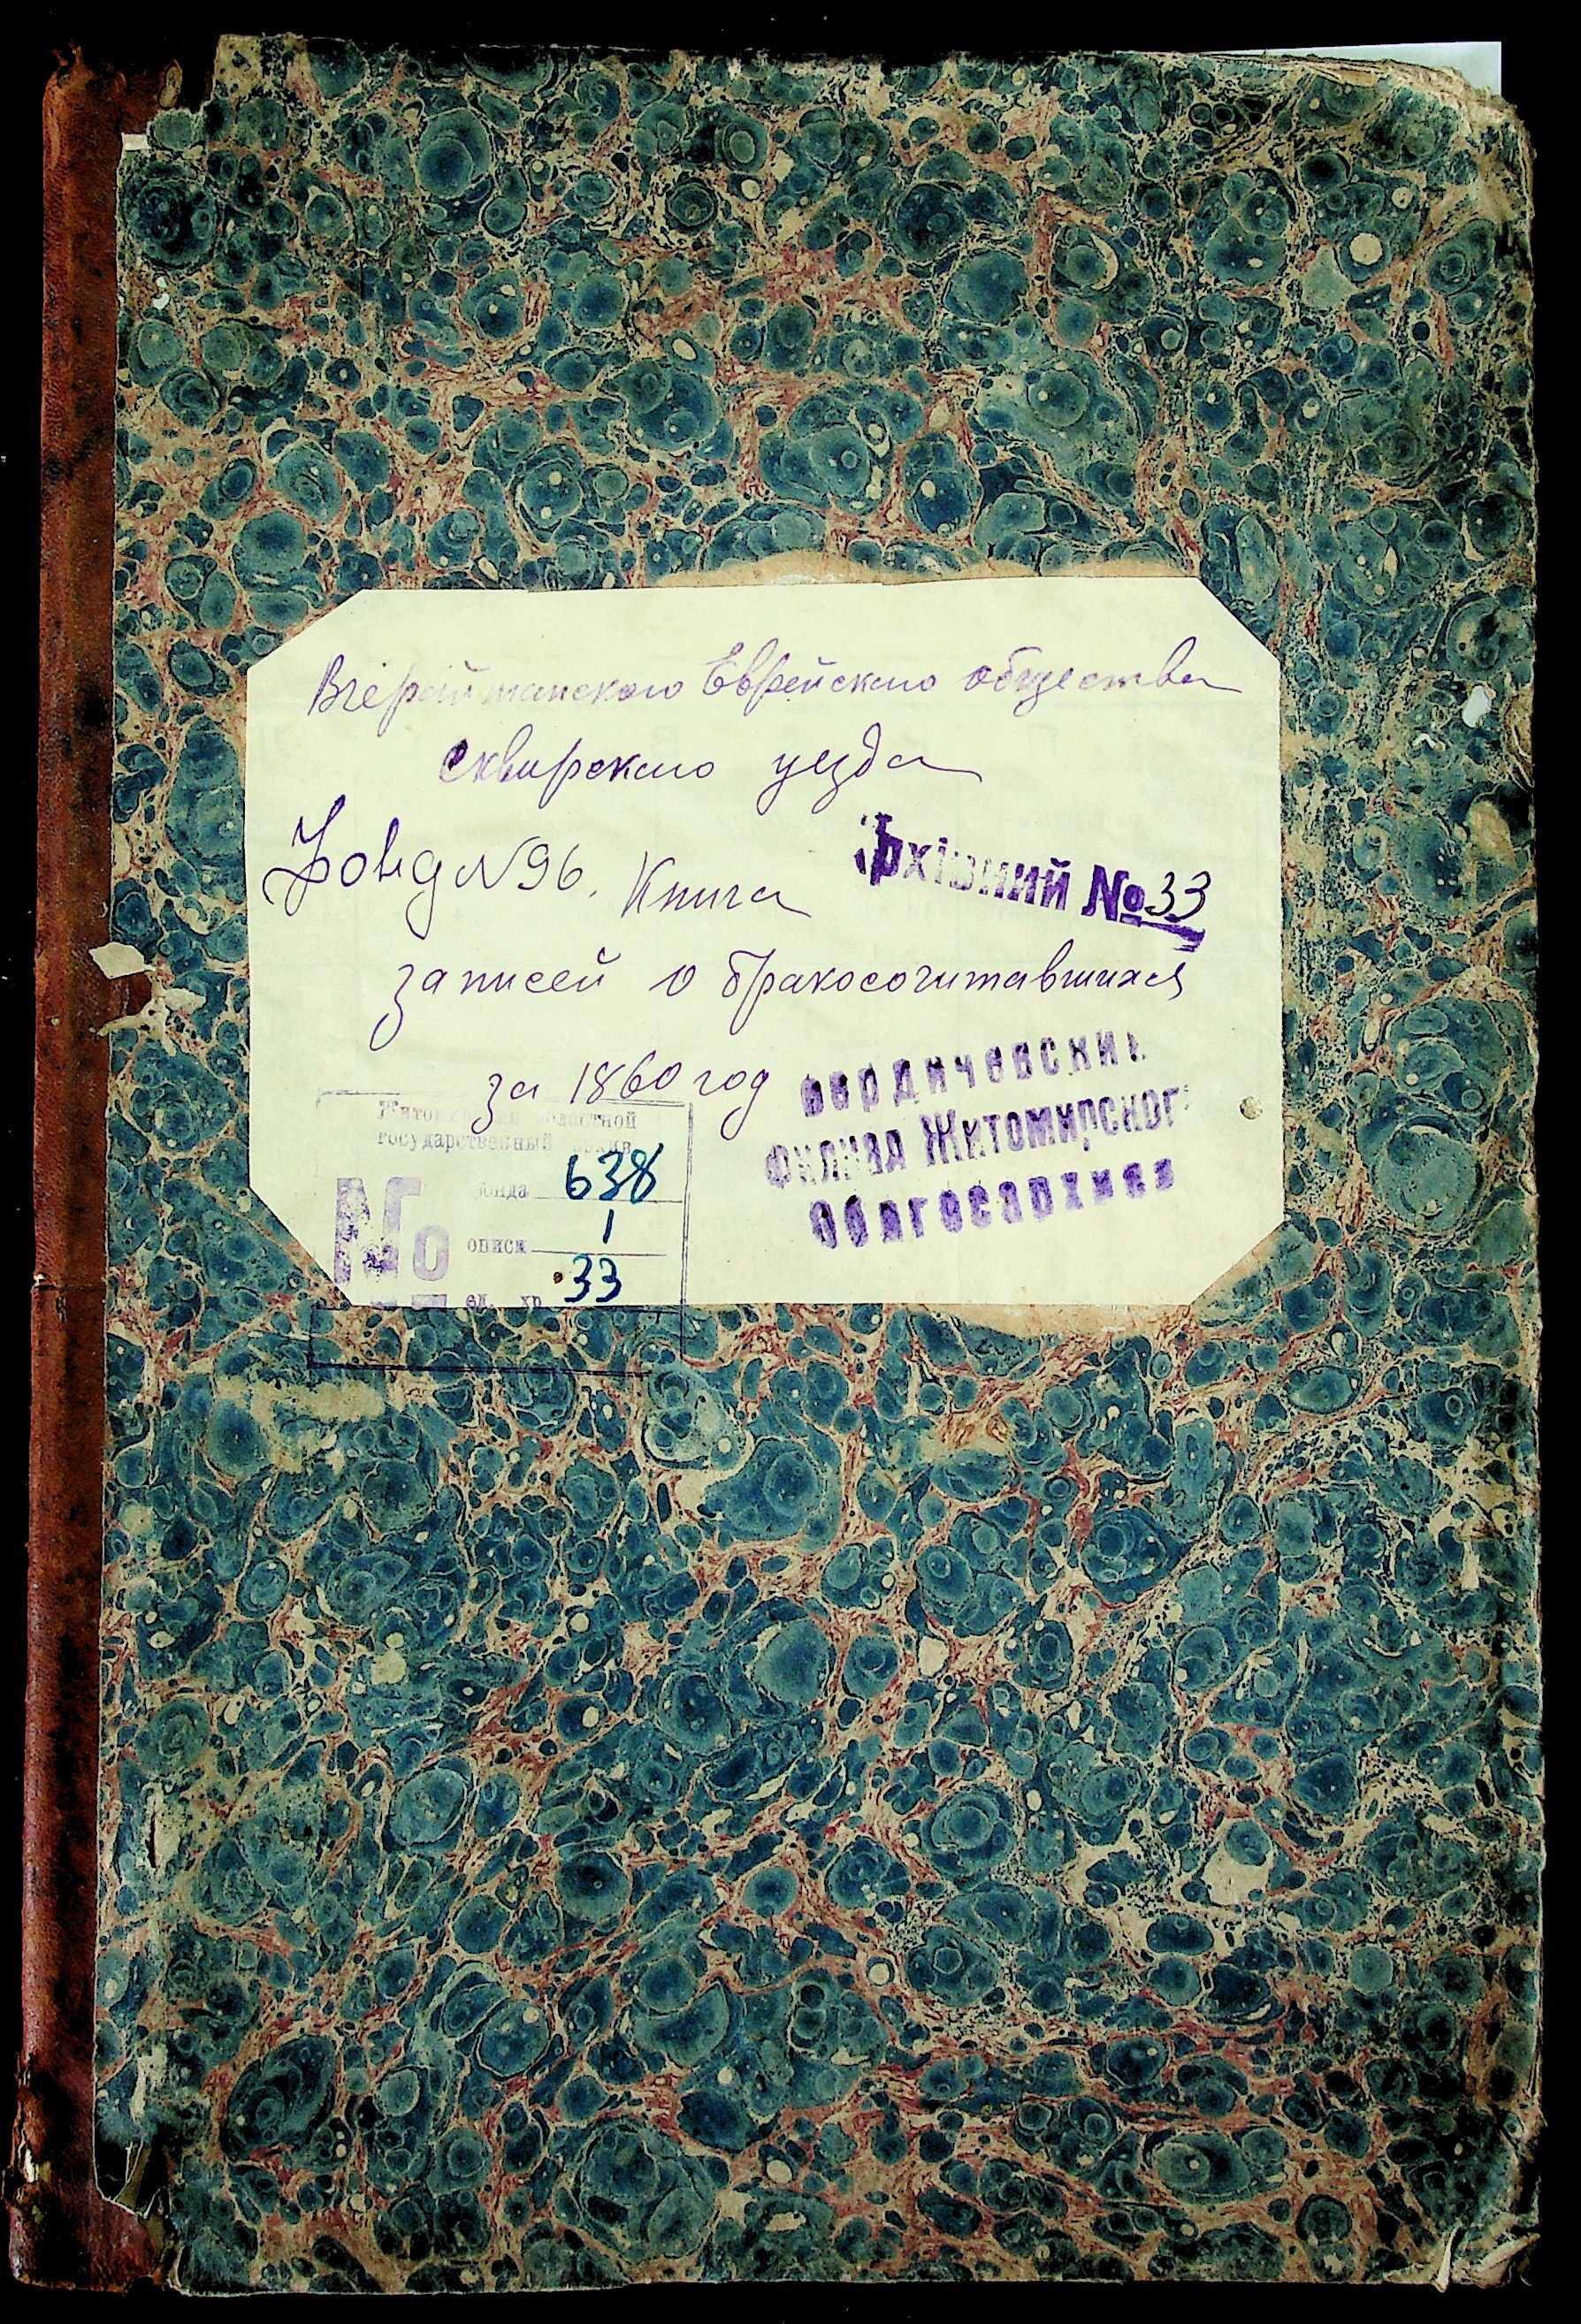 Вчерайшанского Еврейского общества
сквирского уезда
Фонд N 96. Книга
Архівний № 33
записей о бракосочитавшихся
за 1860 год
Бердичевский
Филиал Житомирского
Облгосархива
Житомирский областной
государственный архив
№
фонда 638
описи 1
ед. хр. 33